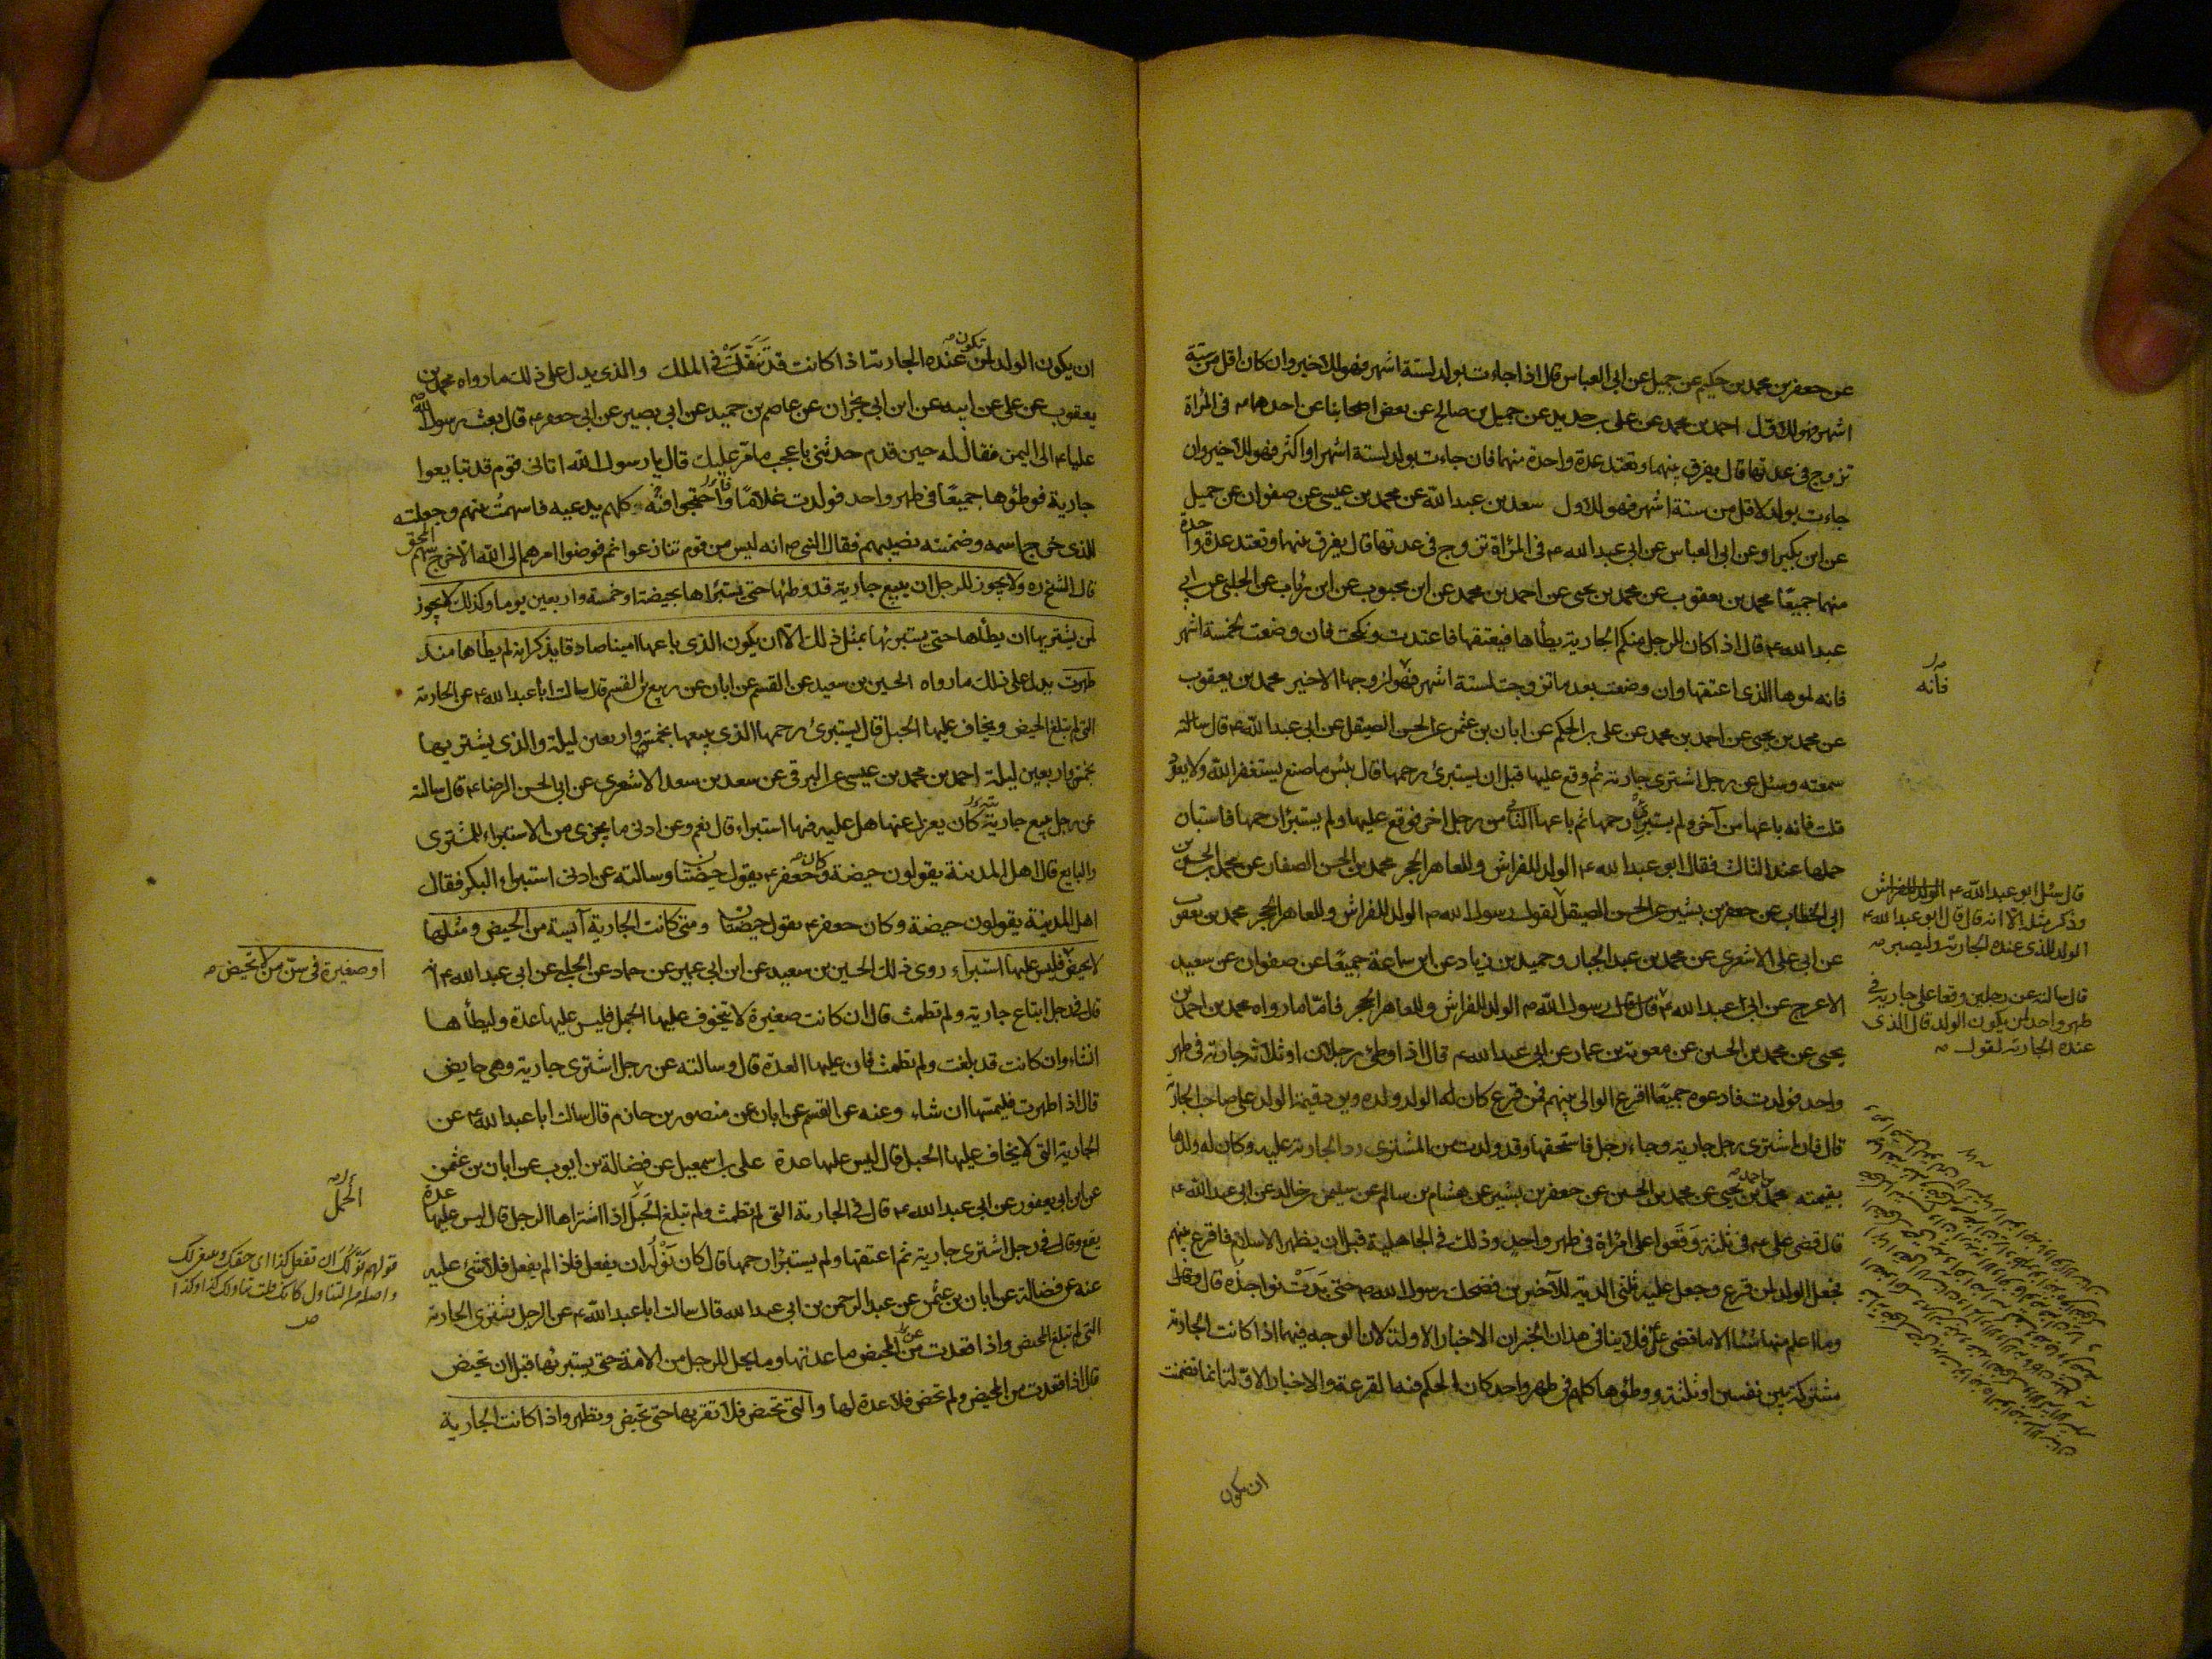 عن جعفر بن محمد بن حكيم عن جميل عن ابي العباس قال اذا جاءت بولد لستة اشهر فهو للاخير وان كان اقل من ستة
اشهر فهو للاول احمد بن محمد عن علي بن حديد عن جميل بن صالح عن بعض اصحابنا عن احدهما ع في المرأة
تزوج في عدتها قال يفرق بينهما وتعتد عدة واحدة منهما فان جاءت بولد لستة اشهر او اكثر فهو للاخير وان
جاءت بولد لاقل من ستة اشهر فهو للاول سعد بن عبد الله عن محمد بن عيسى عن صفوان عن جميل
عن ابن بكير او عن ابي العباس عن ابي عبد الله ع في المرأة تزوج في عدتها قال يفرق بينهما وتعتد عدة واحدة
منهما جميعا محمد بن يعقوب عن محمد بن يحيى عن احمد بن محمد عن ابن محبوب عن ابن رئاب عن الحلبي عن ابي
عبد الله ع قال اذا كان للرجل منكم الجارية يطأها فيعتقها فاعتدت ونكحت فان وضعت لخمسة اشهر
فانه لمولاها الذي اعتقها وان وضعت بعد ما تزوجت لستة اشهر فهو لزوجها الاخير محمد بن يعقوب
عن محمد بن يحيى عن احمد بن محمد عن علي بن الحكم عن ابان بن عثمن عن الحسن الصيقل عن ابي عبد الله ع قال سالته
سمعته وسئل عن رجل اشترى جارية ثم وقع عليها قبل ان يستبرئ رحمها قال بئس ما صنع يستغفر الله ولا يعود
قلت فانه باعها من آخر ولم يستبرئ رحمها ثم باعها الثاني من رجل اخر فوقع عليها ولم يستبرأ رحمها فاستبان
حملها عند الثالث فقال ابو عبد الله ع الولد للفراش وللعاهر الحجر محمد بن الحسن الصفار عن محمد بن الحسين بن
ابي الخطاب عن جعفر بن بشير عن الحسن الصيقل لقول رسول الله ص الولد للفراش وللعاهر الحجر محمد بن يعقوب
عن ابي علي الاشعري عن محمد بن عبد الجبار وحميد بن زياد عن ابن سماعة جميعا عن صفوان عن سعيد
الاعرج عن ابي عبد الله ع قال قال رسول الله ص الولد للفراش وللعاهر الحجر فاما ما رواه محمد بن احمد بن
يحيى عن محمد بن الحسين عن معوية بن عمار عن ابي عبد الله ع قال اذا وطئ رجلان او ثلاثة جارية في طهر
واحد فولدت فادعوه جميعا اقرع الوالي بينهم فمن قرع كان له الولد ولده ويرد قيمة الولد على صاحب الجارية
قال فان اشترى رجل جارية وجاء رجل فاستحقها وقد ولدت من المشتري رد الجارية عليه وكان له ولدها
بقيمته محمد بن احمد بن يحيى عن محمد بن الحسين عن جعفر بن بشير عن هشام بن سالم عن سليمن بن خالد عن ابي عبد الله ع
قال قضى علي ع في ثلثة وقعوا على امرأة في طهر واحد وذلك في الجاهلية قبل ان يظهر الاسلام فاقرع بينهم
فجعل الولد لمن قرع وجعل عليه ثلثي الدية للآخرين فضحك رسول الله ص حتى بدت نواجذه قال وقال
وما اعلم منها شيئا الا ما قضى علي فلا ينافي هذان الخبران الاخبار الاولة لان الوجه فيهما اذا كانت الجارية
مشتركة بين نفسين او ثلثة ووطئوها كلهم في طهر واحد كان الحكم فيه القرعة والاخبار الاولة انما تضمنت
ان يكون
فانه
قال سئل ابو عبد الله ع الولد للفراش
وذكر مثله الا انه قال قال ابو عبد الله ع
الولد للذي عنده الجارية وليصبر
قال سالته عن رجلين وقعا على جارية في
طهر واحد لمن يكون الولد قال للذي
عنده الجارية لقول
ان يكون الولد لمن تكون عنده الجارية اذا كانت قد تنقلت في الملك والذي يدل على ذلك ما رواه محمد بن
يعقوب عن علي عن ابيه عن ابن ابي نجران عن عاصم بن حميد عن ابي بصير عن ابي جعفر ع قال بعث رسول الله
عليا ع الى اليمن فقال له حين قدم حدثني باعجب ما مر عليك قال يا رسول الله اتاني قوم قد تبايعوا
جارية فوطؤها جميعا في طهر واحد فولدت غلاما واحتجوا فيه كلهم يدعيه فاسهمت بينهم وجعلته
للذي خرج سهمه وضمنته نصيبهم فقال النبي ص انه ليس من قوم تنازعوا ثم فوضوا امرهم الى الله الا خرج سهم المحق
قال الشيخ ره ولا يجوز للرجل ان يبيع جارية قد وطئها حتى يستبرأها بحيضة او خمسة واربعين يوما وكذلك لا يجوز
لمن يشتريها ان يطأها حتى يستبرئها بمثل ذلك الا ان يكون الذي باعها امينا صادقا يذكر انه لم يطأها منذ
طهرت يدل على ذلك ما رواه الحسين بن سعيد عن القسم عن ابان عن ربيع بن القسم قال سالت ابا عبد الله ع عن الجارية
التي لم تبلغ الحيض ويخاف عليها الحبل قال يستبرئ رحمها الذي يبيعها بخمس واربعين ليلة والذي يشتريها
بخمس واربعين ليلة احمد بن محمد بن عيسى عن البرقي عن سعد بن سعد الاشعري عن ابي الحسن الرضا ع قال سالته
عن رجل يبيع جارية كان يعزل عنها هل عليه فيها استبراء قال نعم وعن ادنى ما يجزي من الاستبراء للمشتري
والبايع قال اهل المدينة يقولون حيضة وكان جعفر ع يقول حيضتان وسالته عن ادنى استبراء البكر فقال
اهل المدينة يقولون حيضة وكان جعفر ع يقول حيضتان ومتى كانت الجارية آيسة من الحيض ومثلها
لا يحيض فليس عليها استبراء روى ذلك الحسين بن سعيد عن ابن ابي عمير عن حماد عن الحلبي عن ابي عبد الله ع
قال في رجل ابتاع جارية ولم تطمث قال ان كانت صغيرة لا يتخوف عليها الحمل فليس عليها عدة وليطأها
ان شاء وان كانت قد بلغت ولم تطمث فان عليها العدة قال وسالته عن رجل اشترى جارية وهي حايض
قال اذا طهرت فليمسها ان شاء وعنه عن القسم عن ابان عن منصور بن حازم قال سالت ابا عبد الله ع عن
الجارية التي لا يخاف عليها الحبل قال ليس عليها عدة علي بن اسمعيل عن فضالة بن ايوب عن ابان بن عثمن
عن ابن ابي يعفور عن ابي عبد الله ع قال في الجارية التي لم تطمث ولم تبلغ الحبل اذا اشتراها الرجل قال ليس عليها عدة
يقع وقال في رجل اشترى جارية ثم اعتقها ولم يستبرأ رحمها قال كان نوله ان يفعل فاذا لم يفعل فلا شيء عليه
عنه عن فضالة عن ابان بن عثمن عن عبد الرحمن بن ابي عبد الله قال سالت ابا عبد الله ع عن الرجل يشتري الجارية
التي لم تبلغ المحيض واذا قعدت من المحيض ما عدتها وما يحل للرجل من الامة حتى يستبرئها قبل ان تحيض
قال اذا قعدت من المحيض ولم تحض فلا عدة لها والتي تحيض فلا تقربها حتى تحيض وتطهر واذا كانت الجارية
او صغيرة في سن من لا تحيض
الحمل
قولهم نولك ان تفعل كذا اي حقك وينبغي لك
واصله من التناول كانك قلت تناولك كذا وكذا
ص